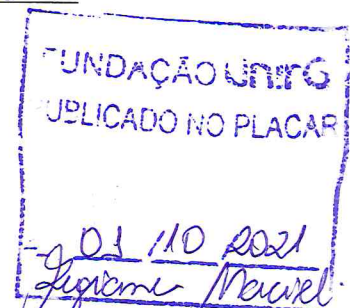 FUNDAÇÃO UnirG
PUBLICADO NO PLACAR
01 / 10 2021
Maciel